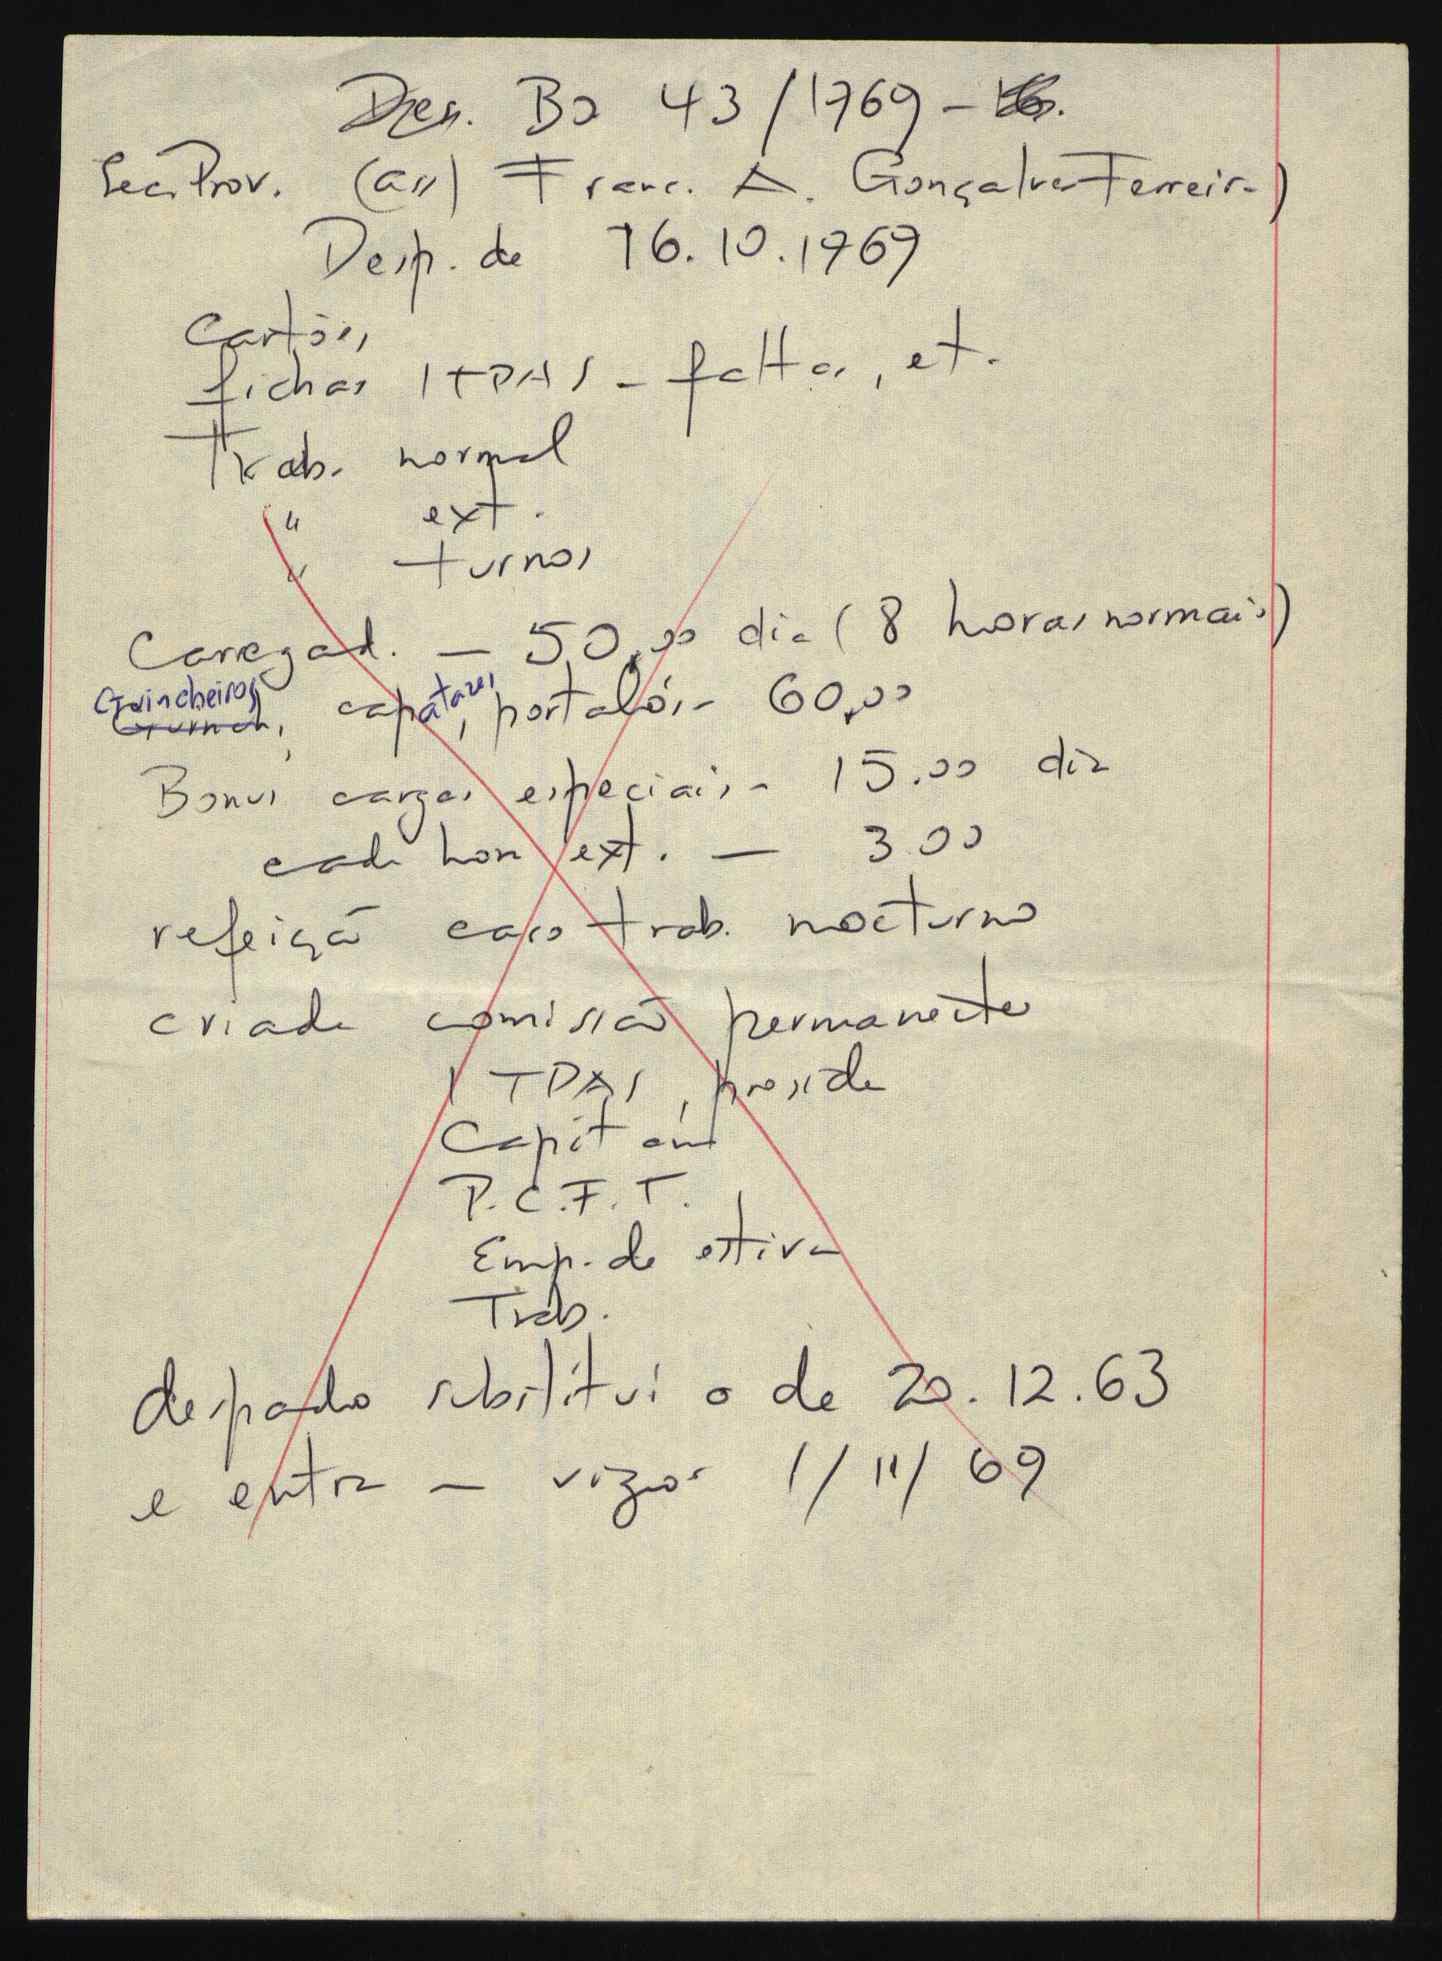 Des. BO 43/1969 -
Sec. Prov. (ass) Franc. A. Gonçalves Ferreira)
Desp. de 16.10.1969
Cartões,
fichas ITPAS - faltas, et.
Trab. normal
" ext.
" turnos
Carregad. — 50,00 dia (8 horas normais)
Guincheiros
, capatazes, portalós - 60,00
Bonus cargas especiais - 15.00 dia
cada hora ext. — 3.00
refeição caso trab. nocturno
criada comissão permanente
ITPAS, preside
Capit
P.C.F.T.
Emp. de estiva
Trab.
despacho substitui o de 20.12.63
e entra — vigor 1/11/69